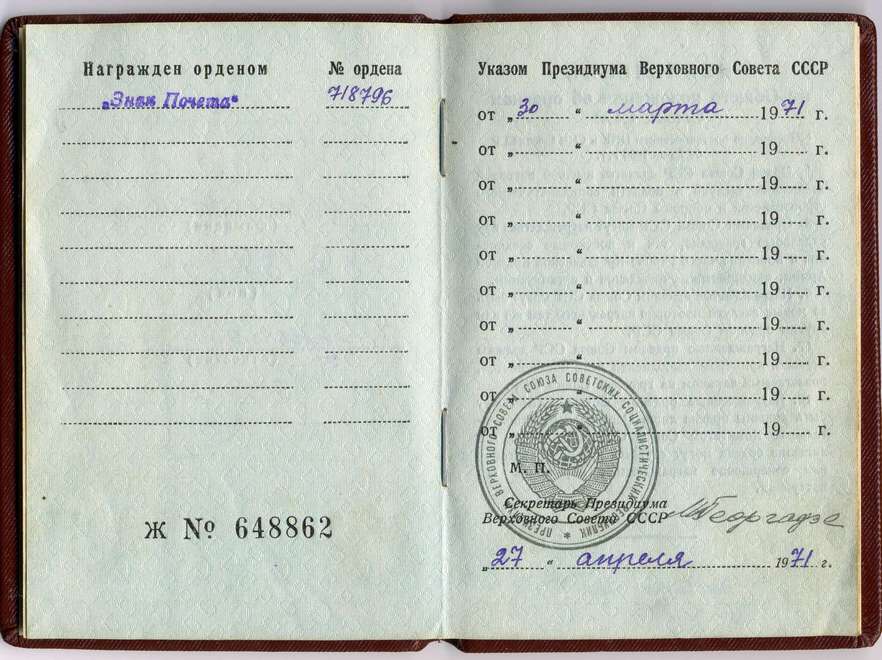 Награжден орденом № ордена
„Знак Почета“ 718796
Ж № 648862
Указом Президиума Верховного Совета СССР
от „30“ марта 1971 г.
от „ “ 19 г.
от „ “ 19 г.
от „ “ 19 г.
от „ “ 19 г.
от „ “ 19 г.
от „ “ 19 г.
от „ “ 19 г.
от „ “ 19 г.
от „ “ 19 г.
ПРЕЗИДИУМ ВЕРХОВНОГО СОВЕТА СОЮЗА СОВЕТСКИХ СОЦИАЛИСТИЧЕСКИХ РЕСПУБЛИК
М. П.
Секретарь Президиума
Верховного Совета СССР МГеоргадзе
„27“ апреля 1971 г.